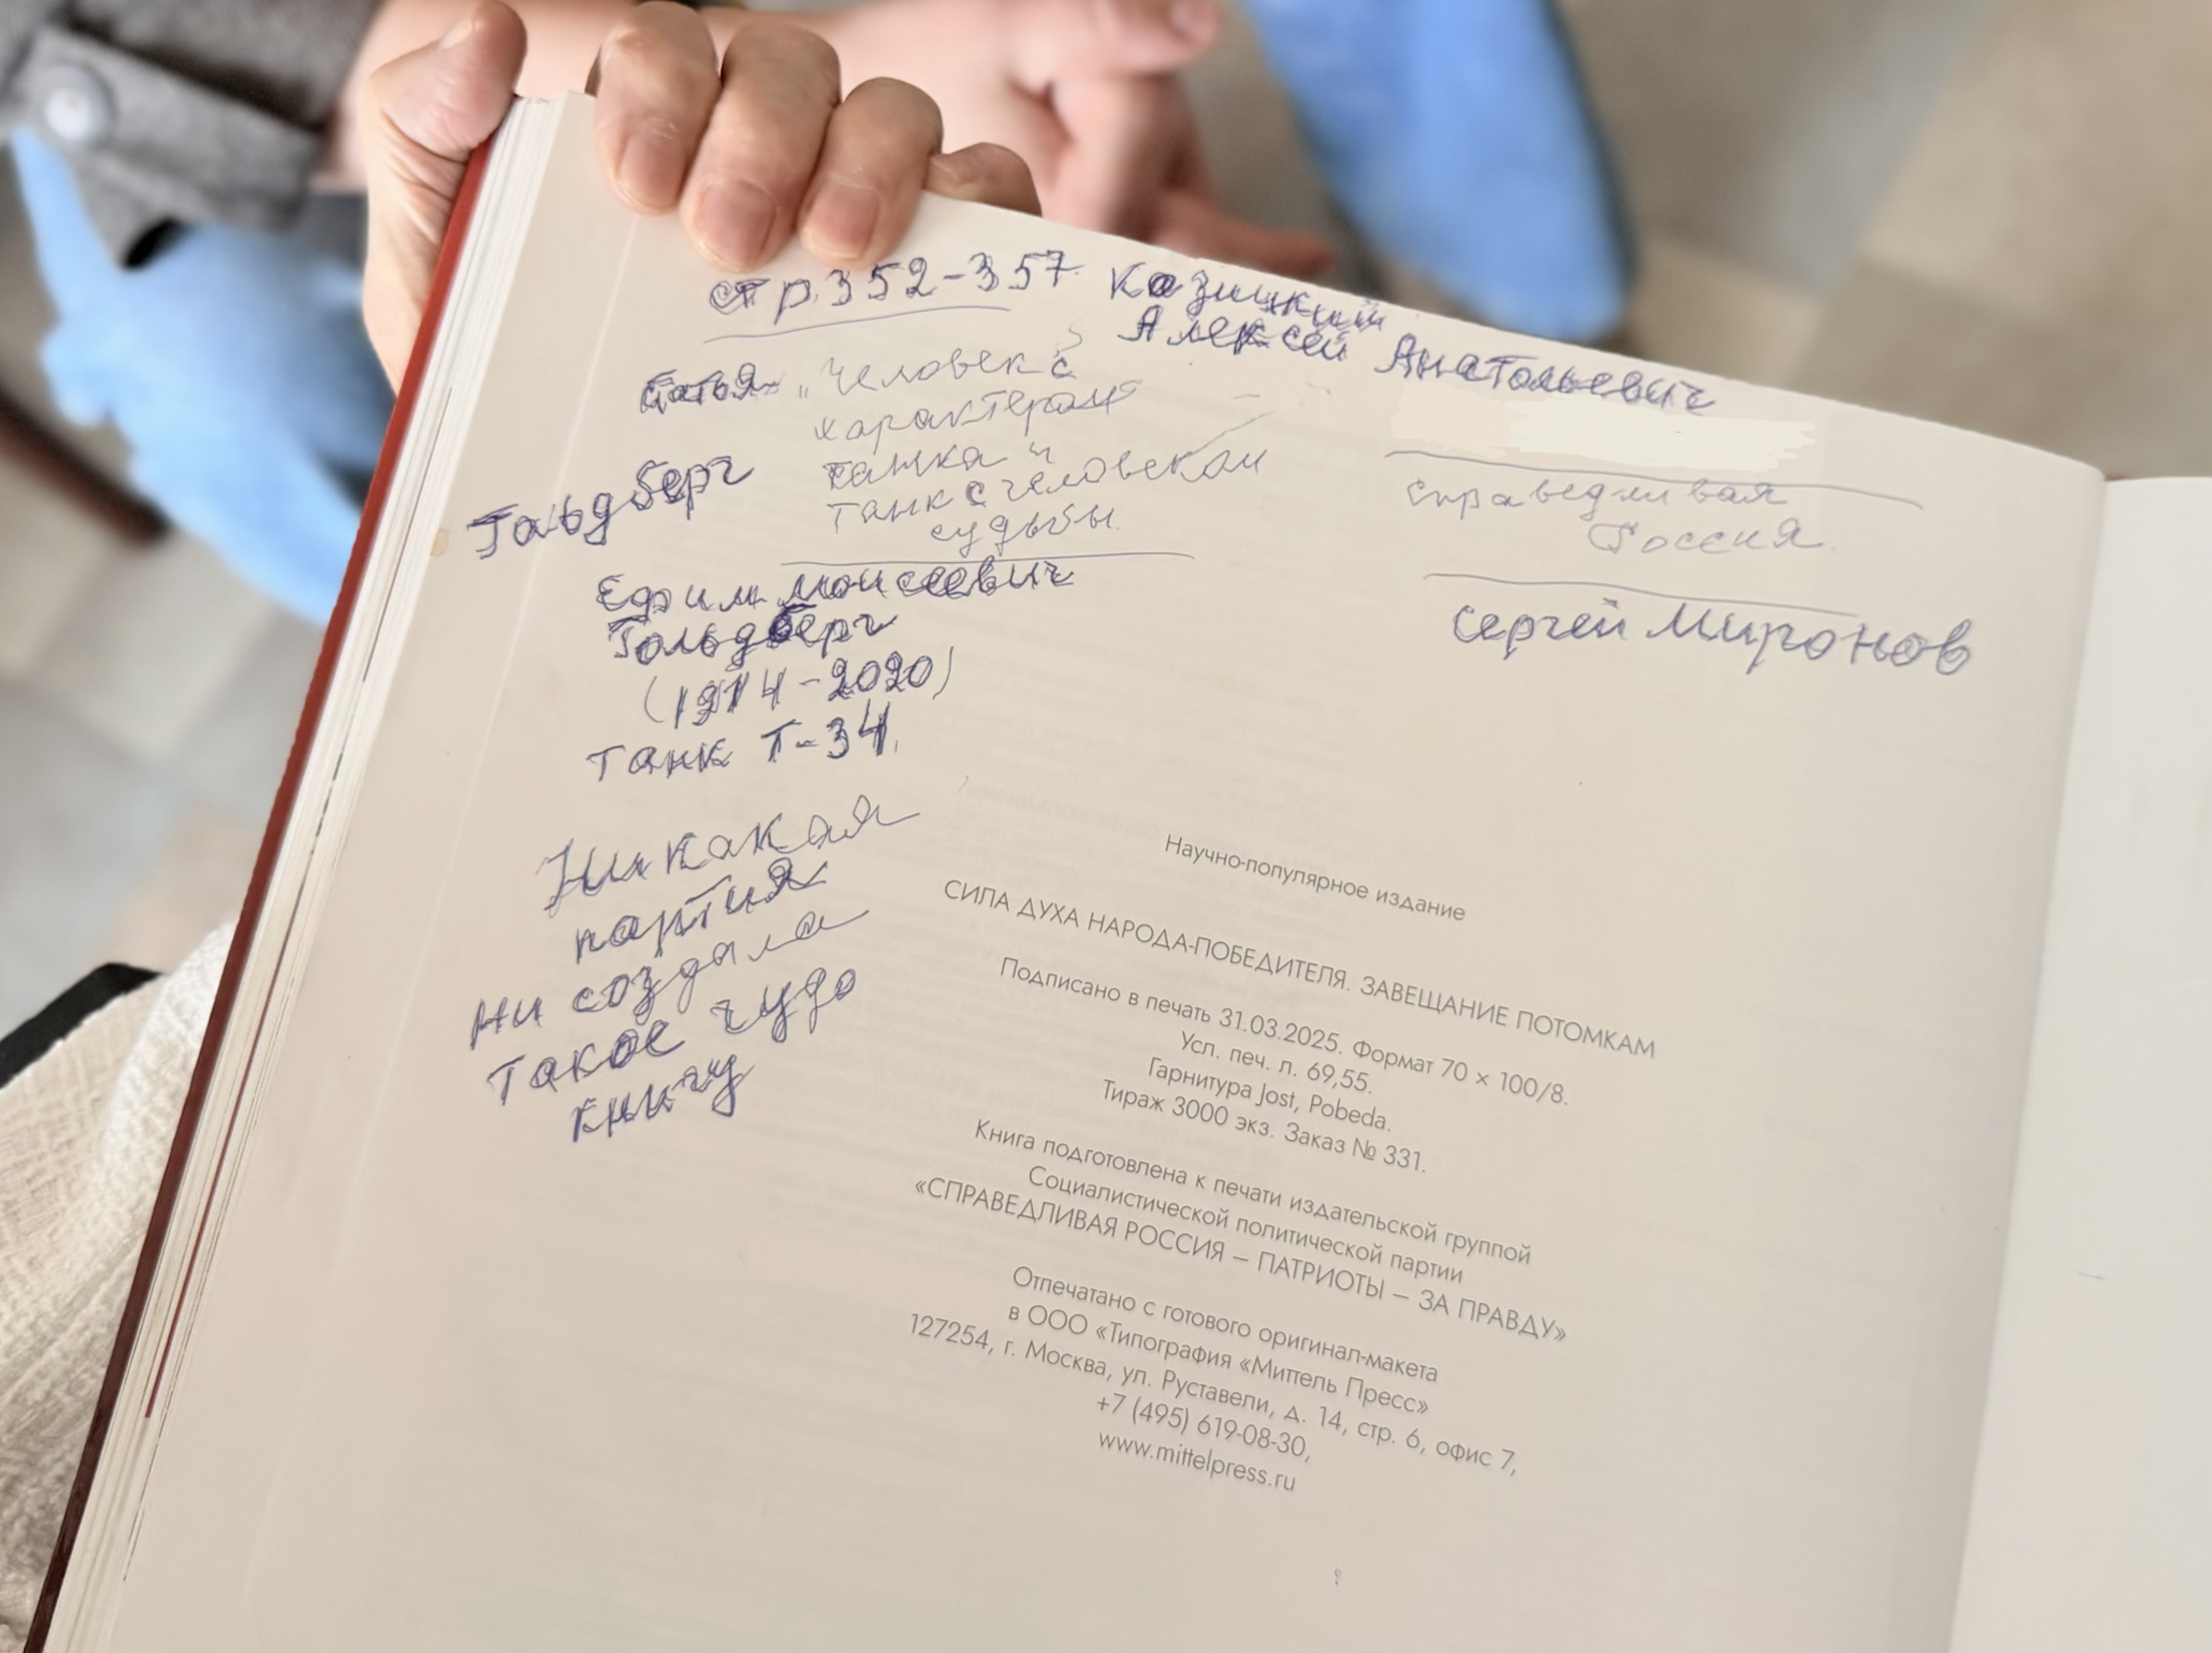 стр. 352-357. Казицкий
Алексей Анатольевич
статья „Человек с
характером
танка и
танк с человеческой
судьбы.
Гальдберг
Ефим Моисеевич
Гольдберг
(1914-2020)
танк Т-34.
Никакая
партия
ни создала
такое чудо
книгу
справедливая
Россия.
Сергей Миронов
Научно-популярное издание
СИЛА ДУХА НАРОДА-ПОБЕДИТЕЛЯ. ЗАВЕЩАНИЕ ПОТОМКАМ
Подписано в печать 31.03.2025. Формат 70 × 100/8.
Усл. печ. л. 69,55.
Гарнитура Jost, Pobeda.
Тираж 3000 экз. Заказ № 331.
Книга подготовлена к печати издательской группой
Социалистической политической партии
«СПРАВЕДЛИВАЯ РОССИЯ – ПАТРИОТЫ – ЗА ПРАВДУ»
Отпечатано с готового оригинал-макета
в ООО «Типография «Миттель Пресс»
127254, г. Москва, ул. Руставели, д. 14, стр. 6, офис 7,
+7 (495) 619-08-30,
www.mittelpress.ru